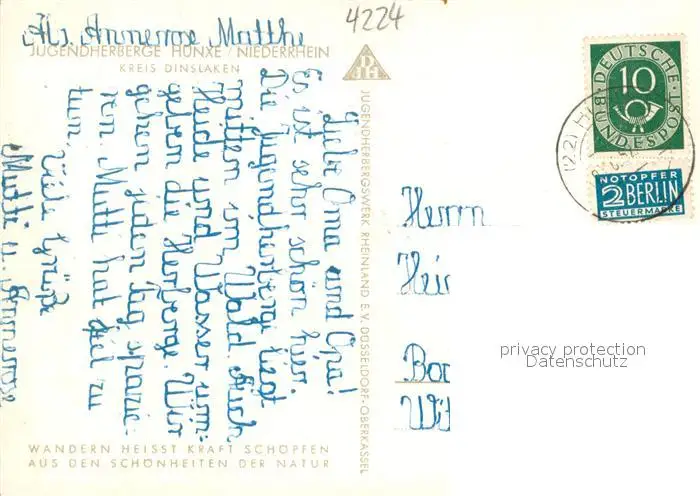 Abs. Annerose Matthe
4224
JUGENDHERBERGE HÜNXE / NIEDERRHEIN
KREIS DINSLAKEN
DJH
Liebe Oma und Opa!
Es ist sehr schön hier.
Die Jugendherberge liegt
mitten im Wald. Auch
Heide und Wasser um-
geben die Herberge. Wir
gehen jeden Tag spazie-
ren. Mutti hat viel zu
tun.
Viele Grüße
Mutti u. Annerose
WANDERN HEISST KRAFT SCHÖPFEN
AUS DEN SCHÖNHEITEN DER NATUR
JUGENDHERBERGSWERK RHEINLAND E.V. DÜSSELDORF-OBERKASSEL
DEUTSCHE
BUNDESPOST
10
(22)
NOTOPFER
2 BERLIN
STEUERMARKE
Herrn
privacy protection
Datenschutz